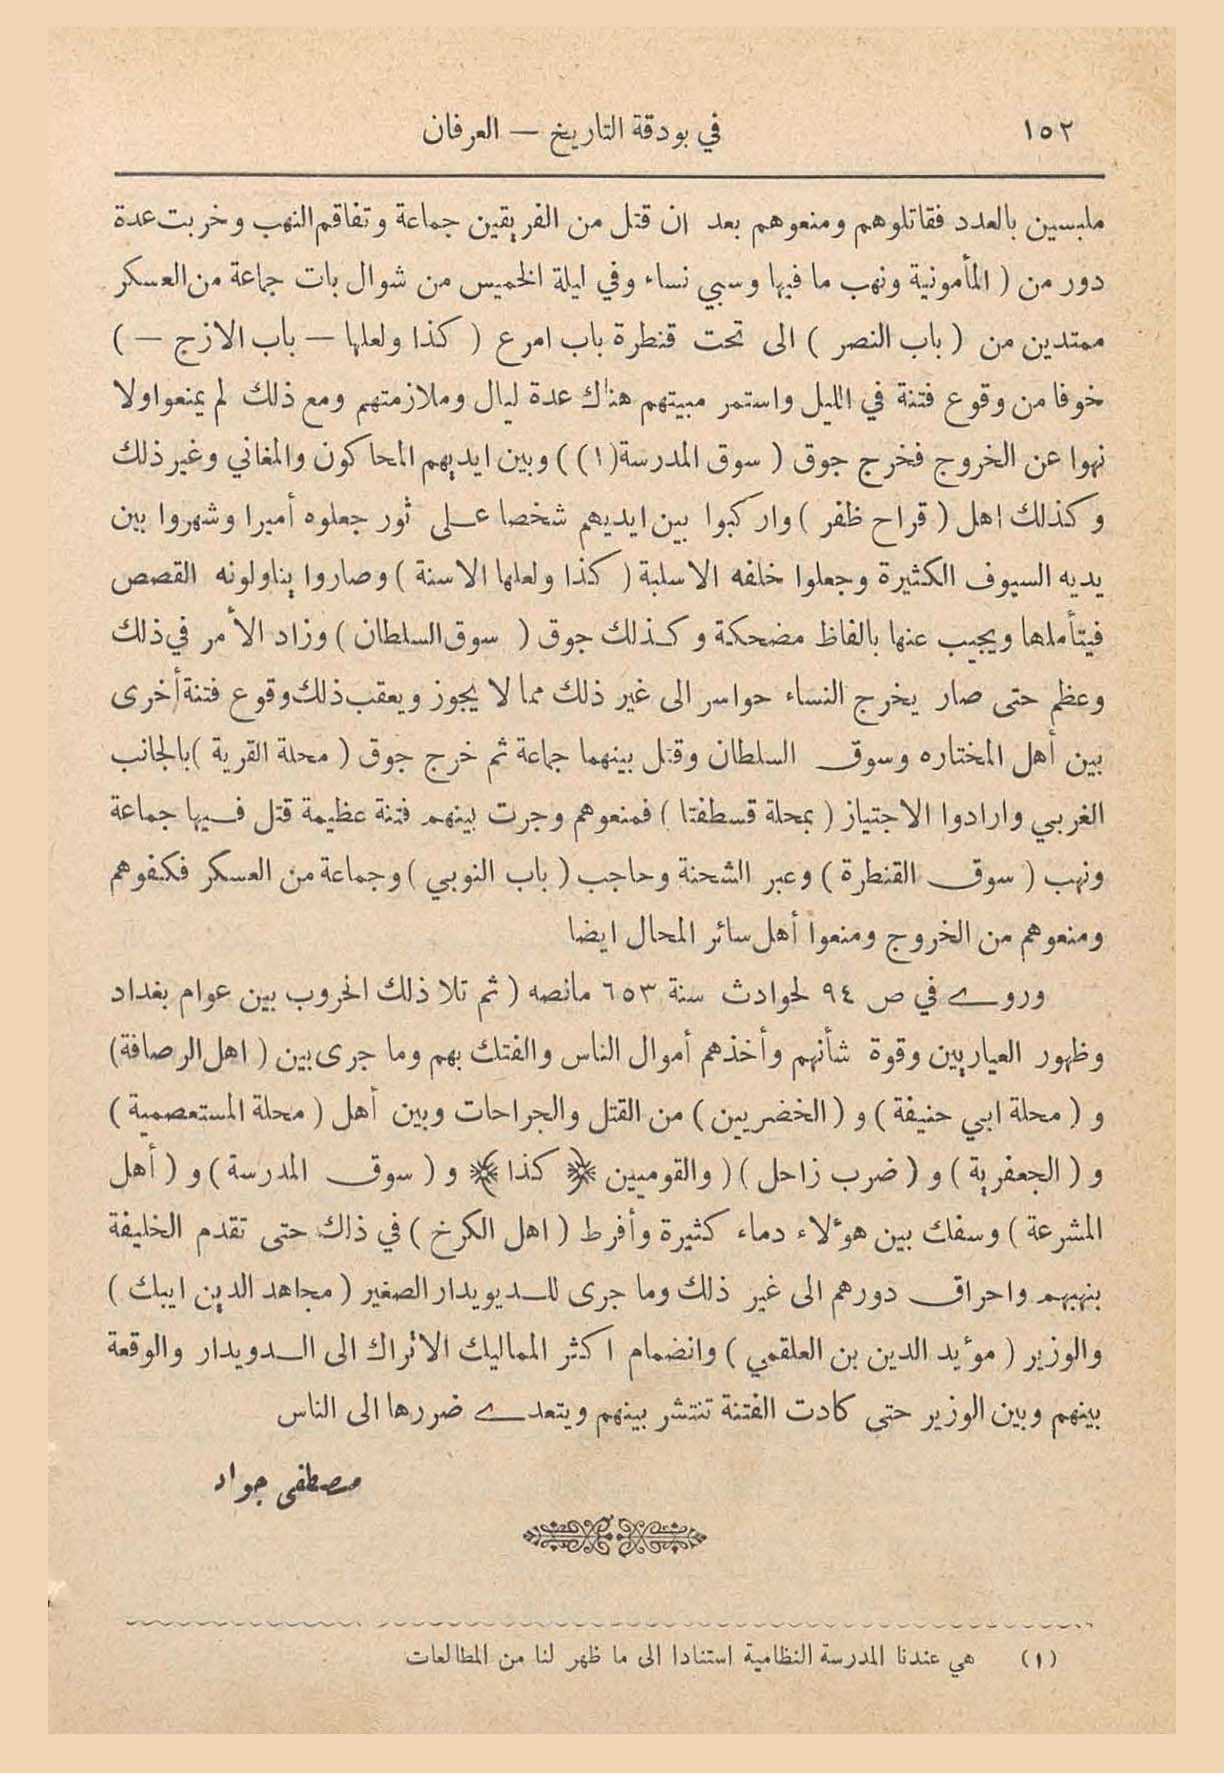 ١٥٢
في بودقة التاريخ — العرفان
ملبسين بالعدد فقاتلوهم ومنعوهم بعد ان قتل من الفريقين جماعة وتفاقم النهب وخربت عدة
دور من ( المأمونية ونهب ما فيها وسبي نساء وفي ليلة الخميس من شوال بات جماعة من العسكر
ممتدين من ( باب النصر ) الى تحت قنطرة باب امرع ( كذا ولعلها — باب الازج — )
خوفا من وقوع فتنة في الليل واستمر مبيتهم هناك عدة ليال وملازمتهم ومع ذلك لم يمنعوا ولا
نهوا عن الخروج فخرج جوق ( سوق المدرسة(١) ) وبين ايديهم المحاكون والمغاني وغير ذلك
وكذلك اهل ( قراح ظفر ) واركبوا بين ايديهم شخصا على ثور جعلوه أميرا وشهروا بين
يديه السيوف الكثيرة وجعلوا خلفه الاسلبة ( كذا ولعلها الاسنة ) وصاروا يناولونه القصص
فيتأملها ويجيب عنها بالفاظ مضحكة وكذلك جوق ( سوق السلطان ) وزاد الأمر في ذلك
وعظم حتى صار يخرج النساء حواسر الى غير ذلك مما لا يجوز ويعقب ذلك وقوع فتنة أخرى
بين أهل المختاره وسوق السلطان وقتل بينهما جماعة ثم خرج جوق ( محلة القرية ) بالجانب
الغربي وارادوا الاجتياز ( بمحلة قسطفتا ) فمنعوهم وجرت بينهم فتنة عظيمة قتل فيها جماعة
ونهب ( سوق القنطرة ) وعبر الشحنة وحاجب ( باب النوبي ) وجماعة من العسكر فكفوهم
ومنعوهم من الخروج ومنعوا أهل سائر المحال ايضا
وروى في ص ٩٤ لحوادث سنة ٦٥٣ مانصه ( ثم تلا ذلك الحروب بين عوام بغداد
وظهور العياريين وقوة شأنهم وأخذهم أموال الناس والفتك بهم وما جرى بين ( اهل الرصافة )
و ( محلة ابي حنيفة ) و ( الخضريين ) من القتل والجراحات وبين أهل ( محلة المستعصمية )
و ( الجعفرية ) و ( ضرب زاحل ) ( والقوميين ﴿ كذا ﴾ و ( سوق المدرسة ) و ( أهل
المشرعة ) وسفك بين هؤلاء دماء كثيرة وأفرط ( اهل الكرخ ) في ذلك حتى تقدم الخليفة
بنهبهم واحراق دورهم الى غير ذلك وما جرى للديويدار الصغير ( مجاهد الدين ايبك )
والوزير ( مؤيد الدين بن العلقمي ) وانضمام اكثر المماليك الاتراك الى الدويدار والوقعة
بينهم وبين الوزير حتى كادت الفتنة تنتشر بينهم ويتعدى ضررها الى الناس
مصطفى جواد
(١) هي عندنا المدرسة النظامية استنادا الى ما ظهر لنا من المطالعات